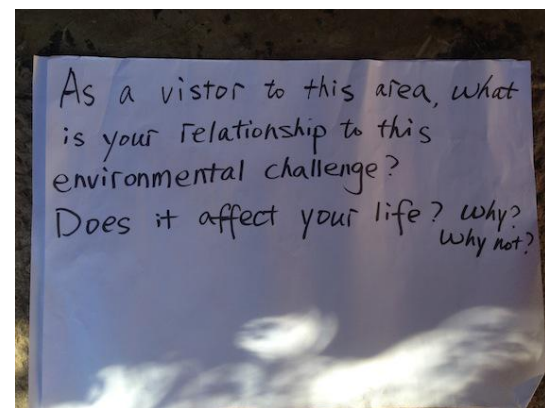 As a vistor to this area, what
is your relationship to this
environmental challenge?
Does it affect your life? Why?
Why not?